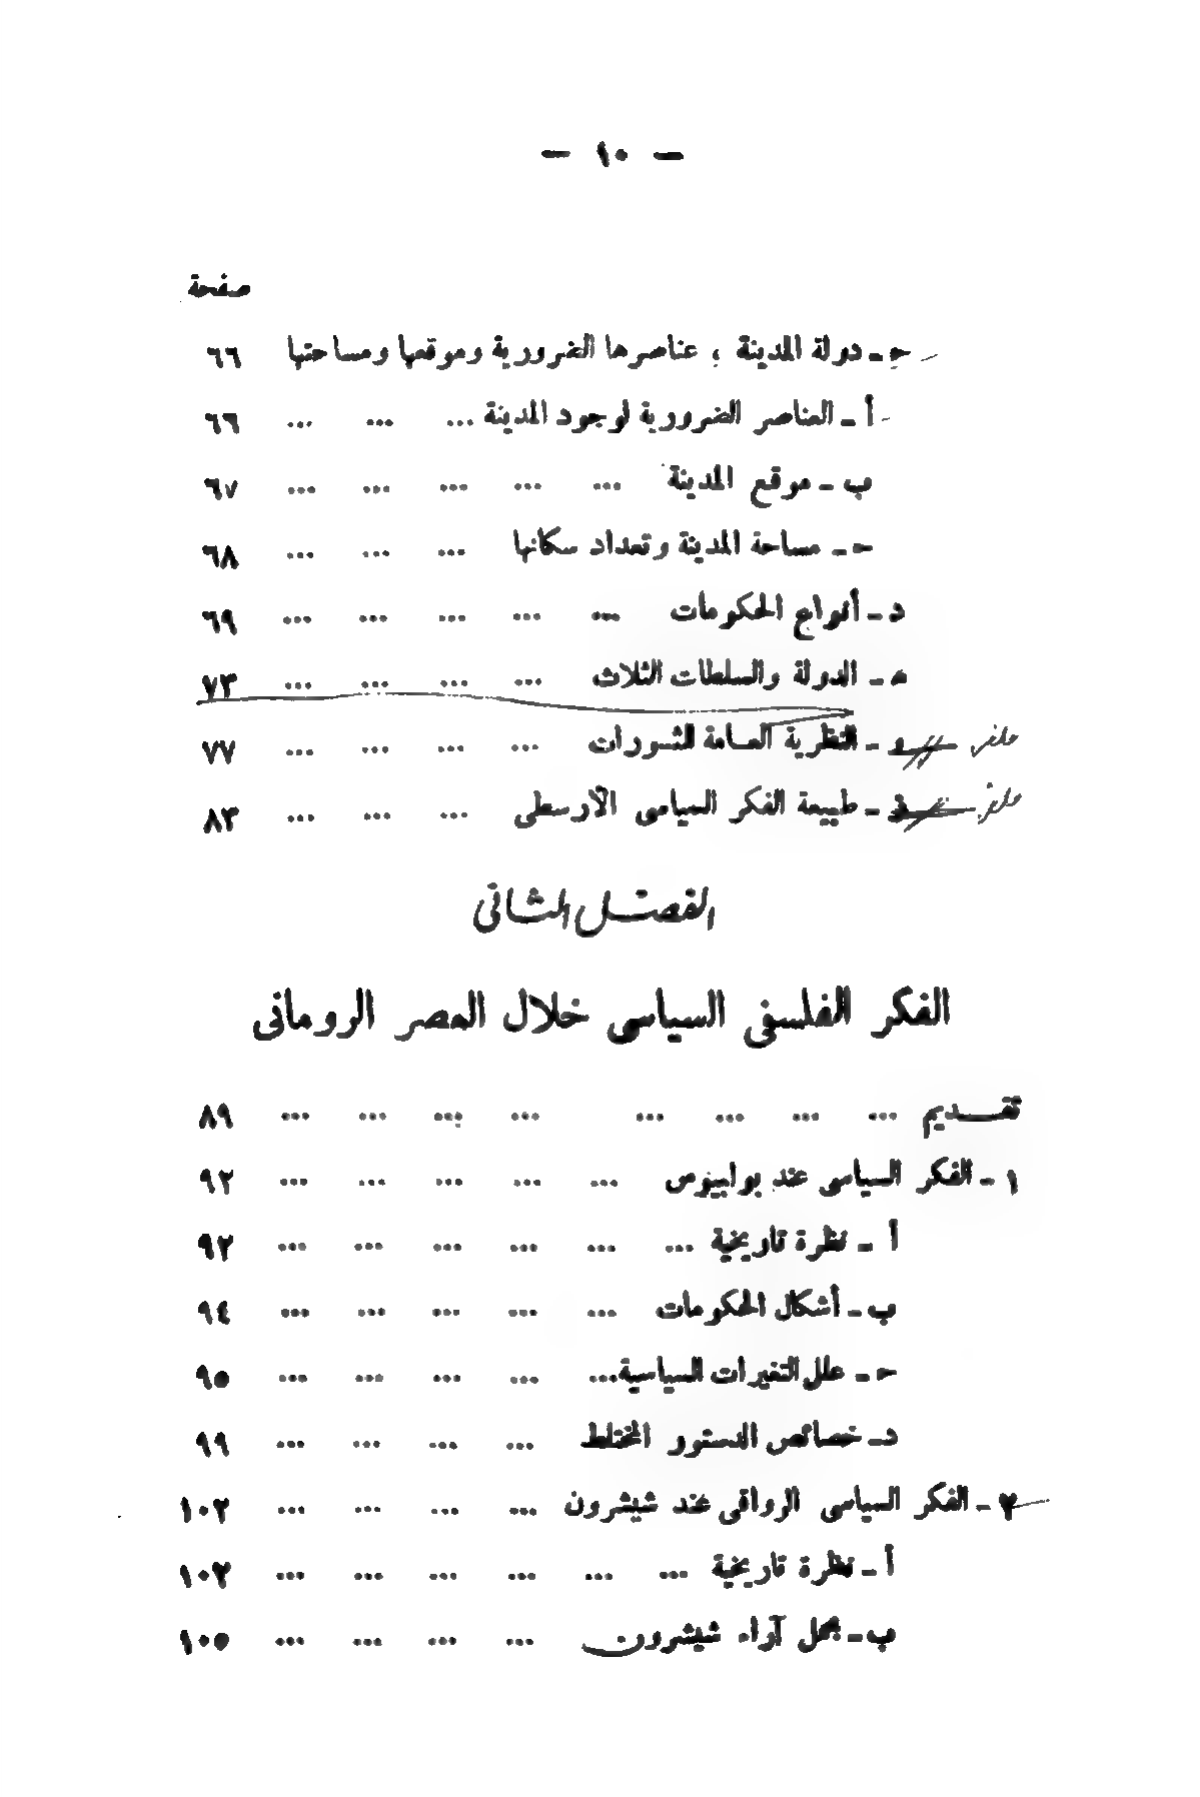 — ١٠ —
صفحة
ج - دولة المدينة ؛ عناصرها الضرورية وموقعها ومساحتها ٦٦
أ - العناصر الضرورية لوجود المدينة ... ... ... ٦٦
ب - موقع المدينة ... ... ... ... ... ٦٧
ح - مساحة المدينة وتعداد سكانها ... ... ... ٦٨
د - أنواع الحكومات ... ... ... ... ... ٦٩
ه - الدولة والسلطات الثلاث ... ... ... ... ٧٣
و - النظرية العامة للثورات ... ... ... ... ٧٧
- طبيعة الفكر السياسى الأرسطى ... ... ... ٨٣
الفصل الثانى
الفكر الفلسفى السياسى خلال العصر الرومانى
تقديم ... ... ... ... ... ... ... ... ٨٩
١ - الفكر السياسى عند بولبيوس ... ... ... ... ... ٩٢
أ - نظرة تاريخية ... ... ... ... ... ... ٩٢
ب - أشكال الحكومات ... ... ... ... ... ٩٤
ح - علل التغيرات السياسية ... ... ... ... ... ٩٥
د - خصائص الدستور المختلط ... ... ... ... ٩٩
٢ - الفكر السياسى الرواقى عند شيشرون ... ... ... ... ١٠٢
أ - نظرة تاريخية ... ... ... ... ... ... ١٠٢
ب - مجمل آراء شيشرون ... ... ... ... ١٠٥